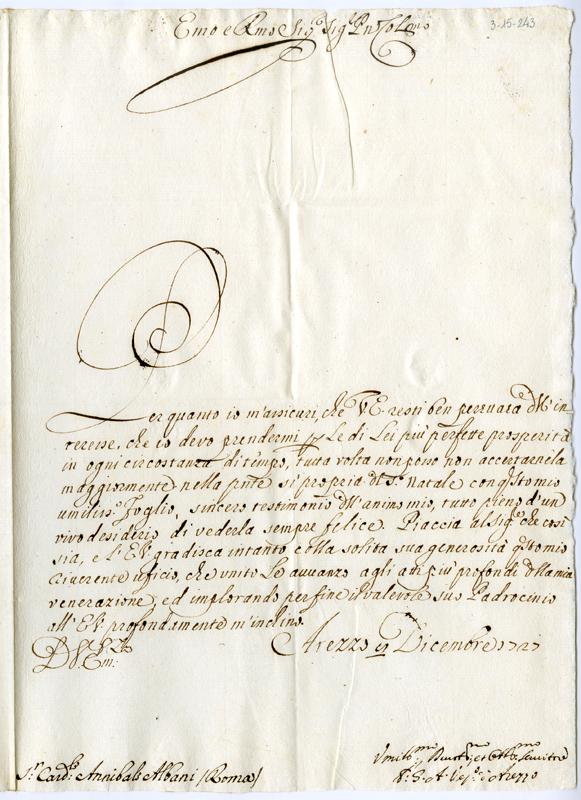 3-15-243
Emo e Rmo Sig.e Sig.e Pn Colmo
Per quanto io m'assicuri, che V.E. resti ben persuasa dell' in-
teresse, che io devo prendermi per le di Lei più perfette prosperità
in ogni circostanza di tempo, tutta volta non posso non accertarnela
maggiormente nella pnte sì propria del S.o Natale con q.sto mio
umiliss.o foglio, sincero testimonio dell' animo mio, tutto pieno d'un
vivo desiderio di vederla sempre felice. Piaccia al Sig.e che così
sia, e l' E.V. gradisca intanto colla solita sua generosità q.sto mio
riverente uficio, che unito Le avvanzo agli atti più profondi della mia
venerazione, ed implorando per fine il valevole suo Padrocinio
all' E.V. profondamente m'inclino.
Arezzo Dicembre 1727
D. V. Em:
Umilo Devot.mo et Obb.mo Servitre
S.r Card.le Annibale Albani (Roma)
Ves.o d'Arezzo